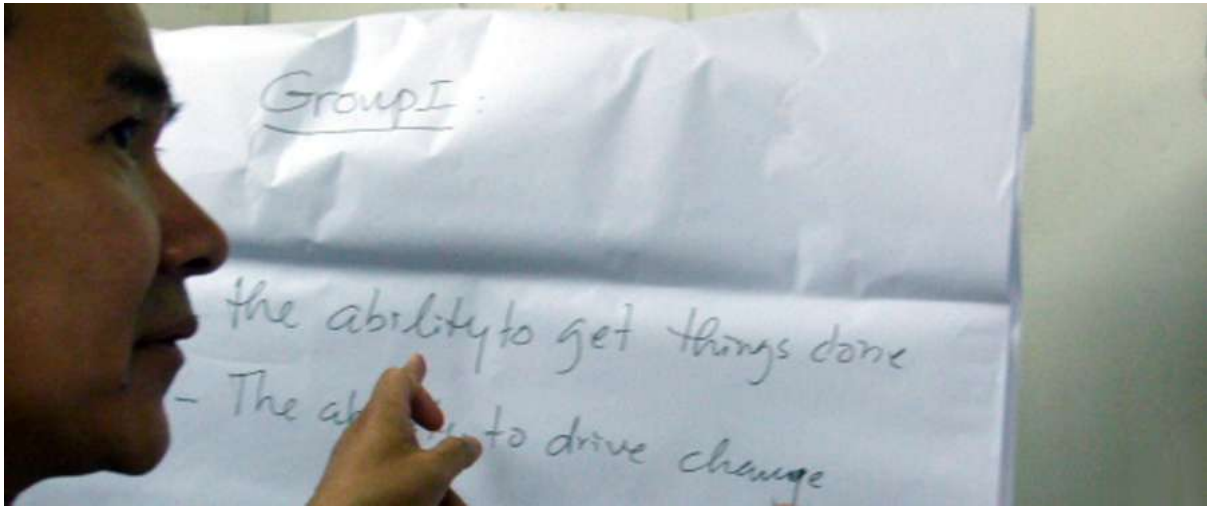 Group I :
- the ability to get things done
- The ability to drive change